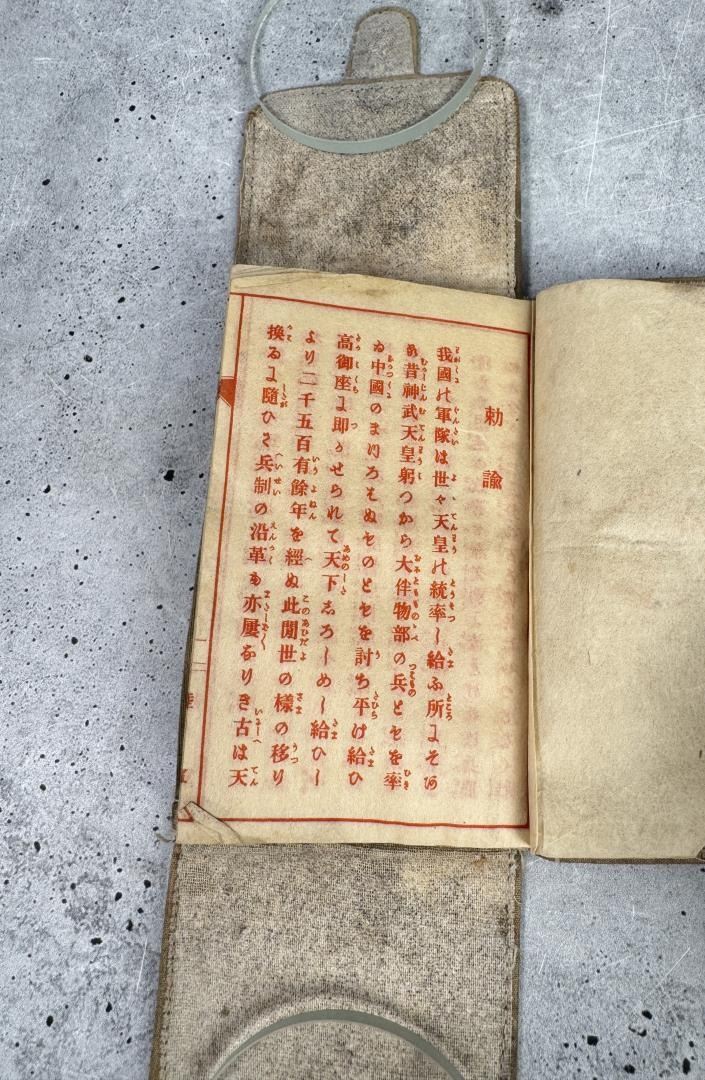 勅諭
我國の軍隊は世々天皇の統率し給ふ所にそあ
る昔神武天皇躬つから大伴物部の兵ともを率
ゐ中國のまつろはぬものともを討ち平け給ひ
高御座に即かせられて天下しろしめし給ひし
より二千五百有餘年を經ぬ此閒世の樣の移り
換るに隨ひて兵制の沿革も亦屢なりき古は天